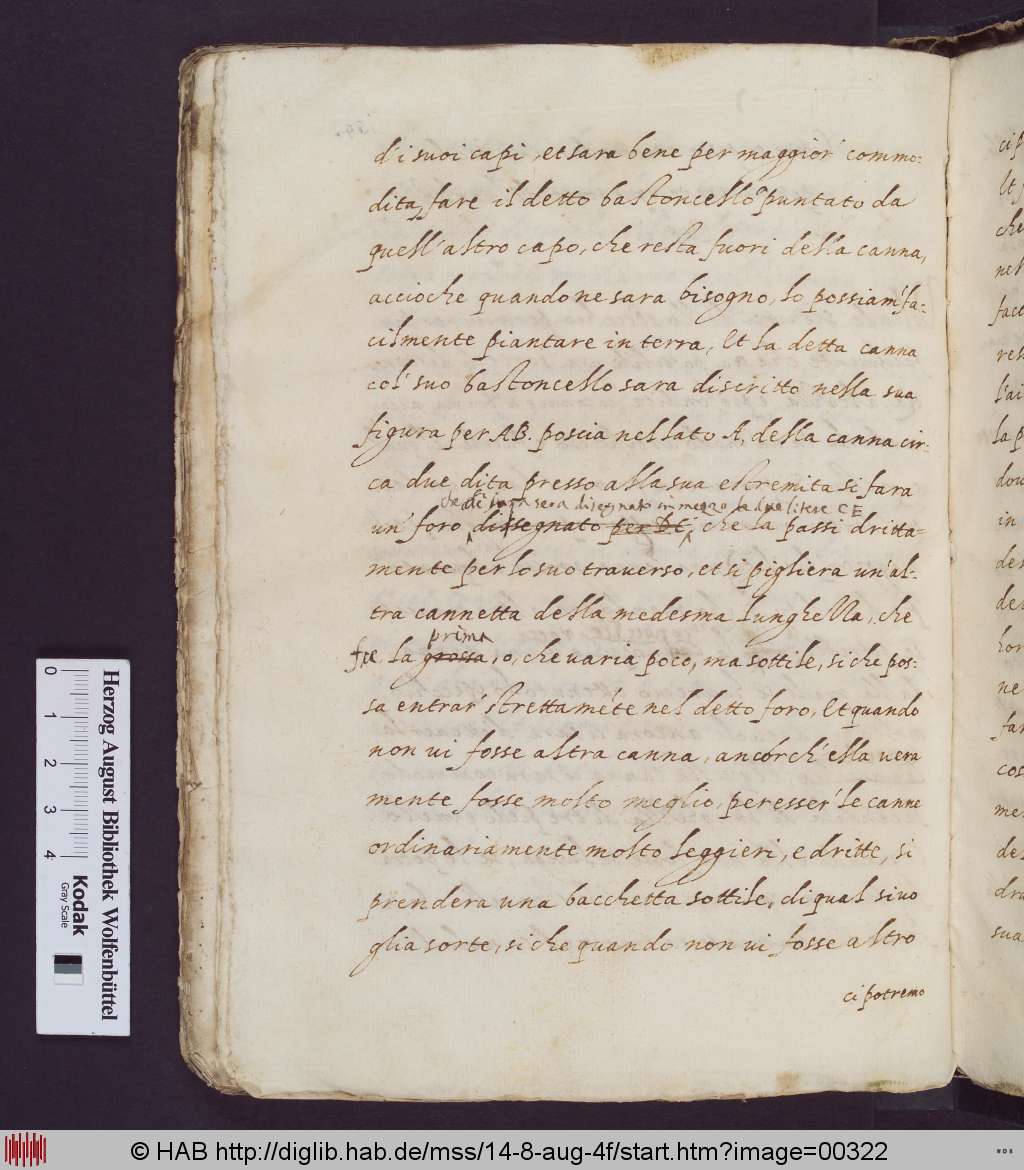 di suoi capi, et sara bene per maggior' commo:
dita, fare il detto bastoncello puntato da
quell'altro capo, che resta fuori della canna,
accioche quando ne sara bisogno, lo possiam' fa-
cilmente piantare in terra, Et la detta canna
col' suo bastoncello sara discritto nella sua
figura per AB. poscia nel lato A, della canna cir-
ca due dita presso alla sua estremita si fara
sera disegnato in mezzo la due litere CE
un' foro dissegnato per DC, che la passi dritta-
mente per lo suo traverso, et si pigliera un'al-
tra cannetta della medesma lunghezza, che
prima
fu la grossa, o, che varia poco, ma sottile, si che pos:
sa entrar' strettaméte nel detto foro, Et quando
non vi fosse altra canna, ancorch' ella vera
mente fosse molto meglio, per esser' le canne
ordinariamente molto leggieri, e dritte, si
prendera una bacchetta sottile, di qual si vo
glia sorte, si che quando non vi fosse altro
ci potremo
ci p
Et
che
nel
fact
res
l'ai
la p
dou
in
des
de
hor
ne
far
cos
me
de
dri
sua
Herzog August Bibliothek Wolfenbüttel
Kodak
Gray Scale
0 1 2 3 4
© HAB http://diglib.hab.de/mss/14-8-aug-4f/start.htm?image=00322